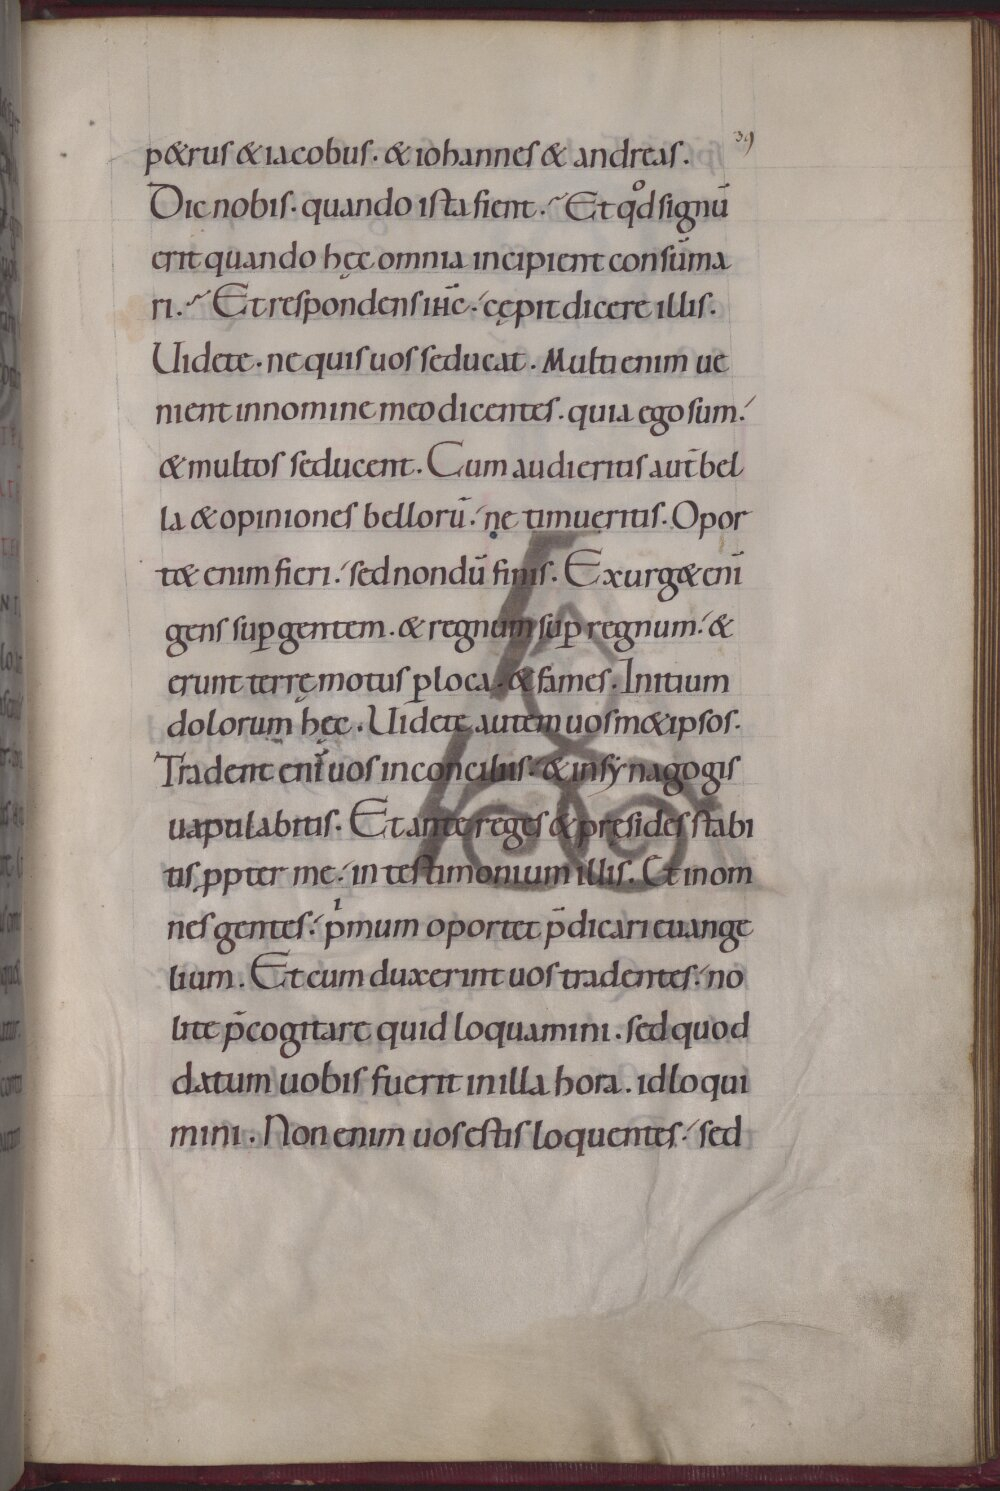 39
p&rus & iacobus. & iohannes & andreas.
Dic nobis. quando ista fient. Et qd̊ signū
erit quando hęc omnia incipient consūma
ri. Et respondens iħc̄. cępit dicere illis.
Uidete. ne quis uos seducat. Multi enim ue
nient in nomine meo dicentes. quia ego sum.
& multos seducent. Cum audieritis aut̄ bel
la & opiniones bellorū. ne timueritis. Opor
t& enim fieri. sed nondū finis. Exurg& enī
gens sup̱ gentem. & regnum sup̱ regnum. &
erunt terrę motus ꝑ loca. & fames. Initium
dolorum hęc. Uidete autem uosm&ipsos.
Tradent enī uos in conciliis. & in synagogis
uapulabitis. Et ante reges & presides stabi
tis ꝓpter me. in testimonium illis. Et in om
nes gentes. pͥmum oportet p̄dicari euange
lium. Et cum duxerint uos tradentes. no
lite p̄cogitare quid loquamini. sed quod
datum uobis fuerit in illa hora. id loqui
mini. Non enim uos estis loquentes. sed